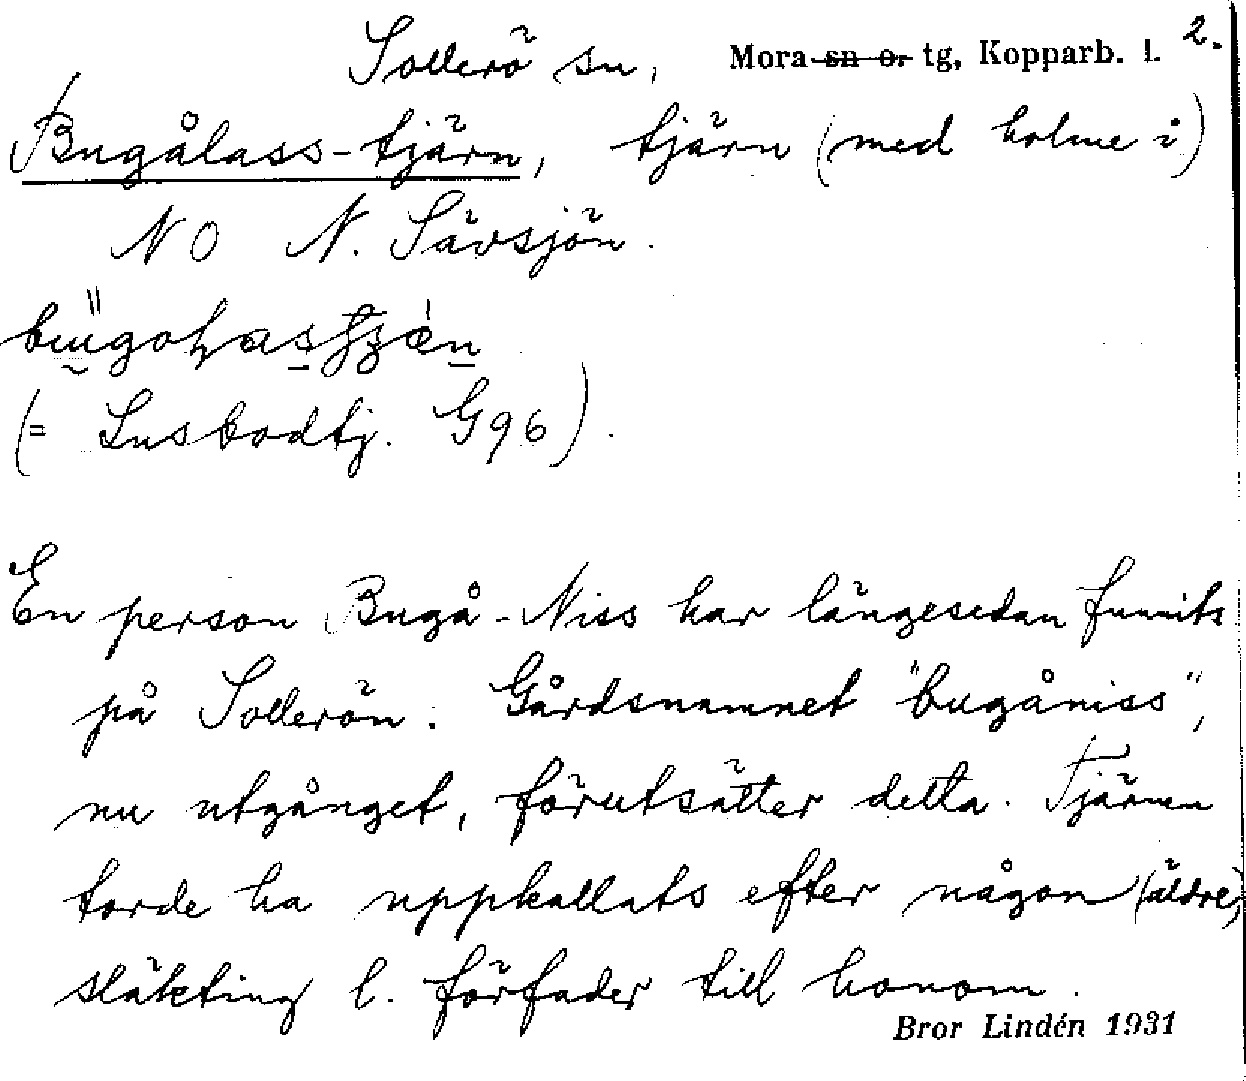 Sollerö sn, Mora sn o. tg, Kopparb. l. 2.
Bugålass-tjärn, tjärn (med holme i)
NO N. Sävsjön.
(= Lusbodtj. G96).
En person Bugå-Niss har längesedan funnits
på Sollerön. Gårdsnamnet "bugåniss",
nu utgånget, förutsätter detta. Tjärnen
torde ha uppkallats efter någon (äldre)
släkting l. förfader till honom.
Bror Lindén 1931